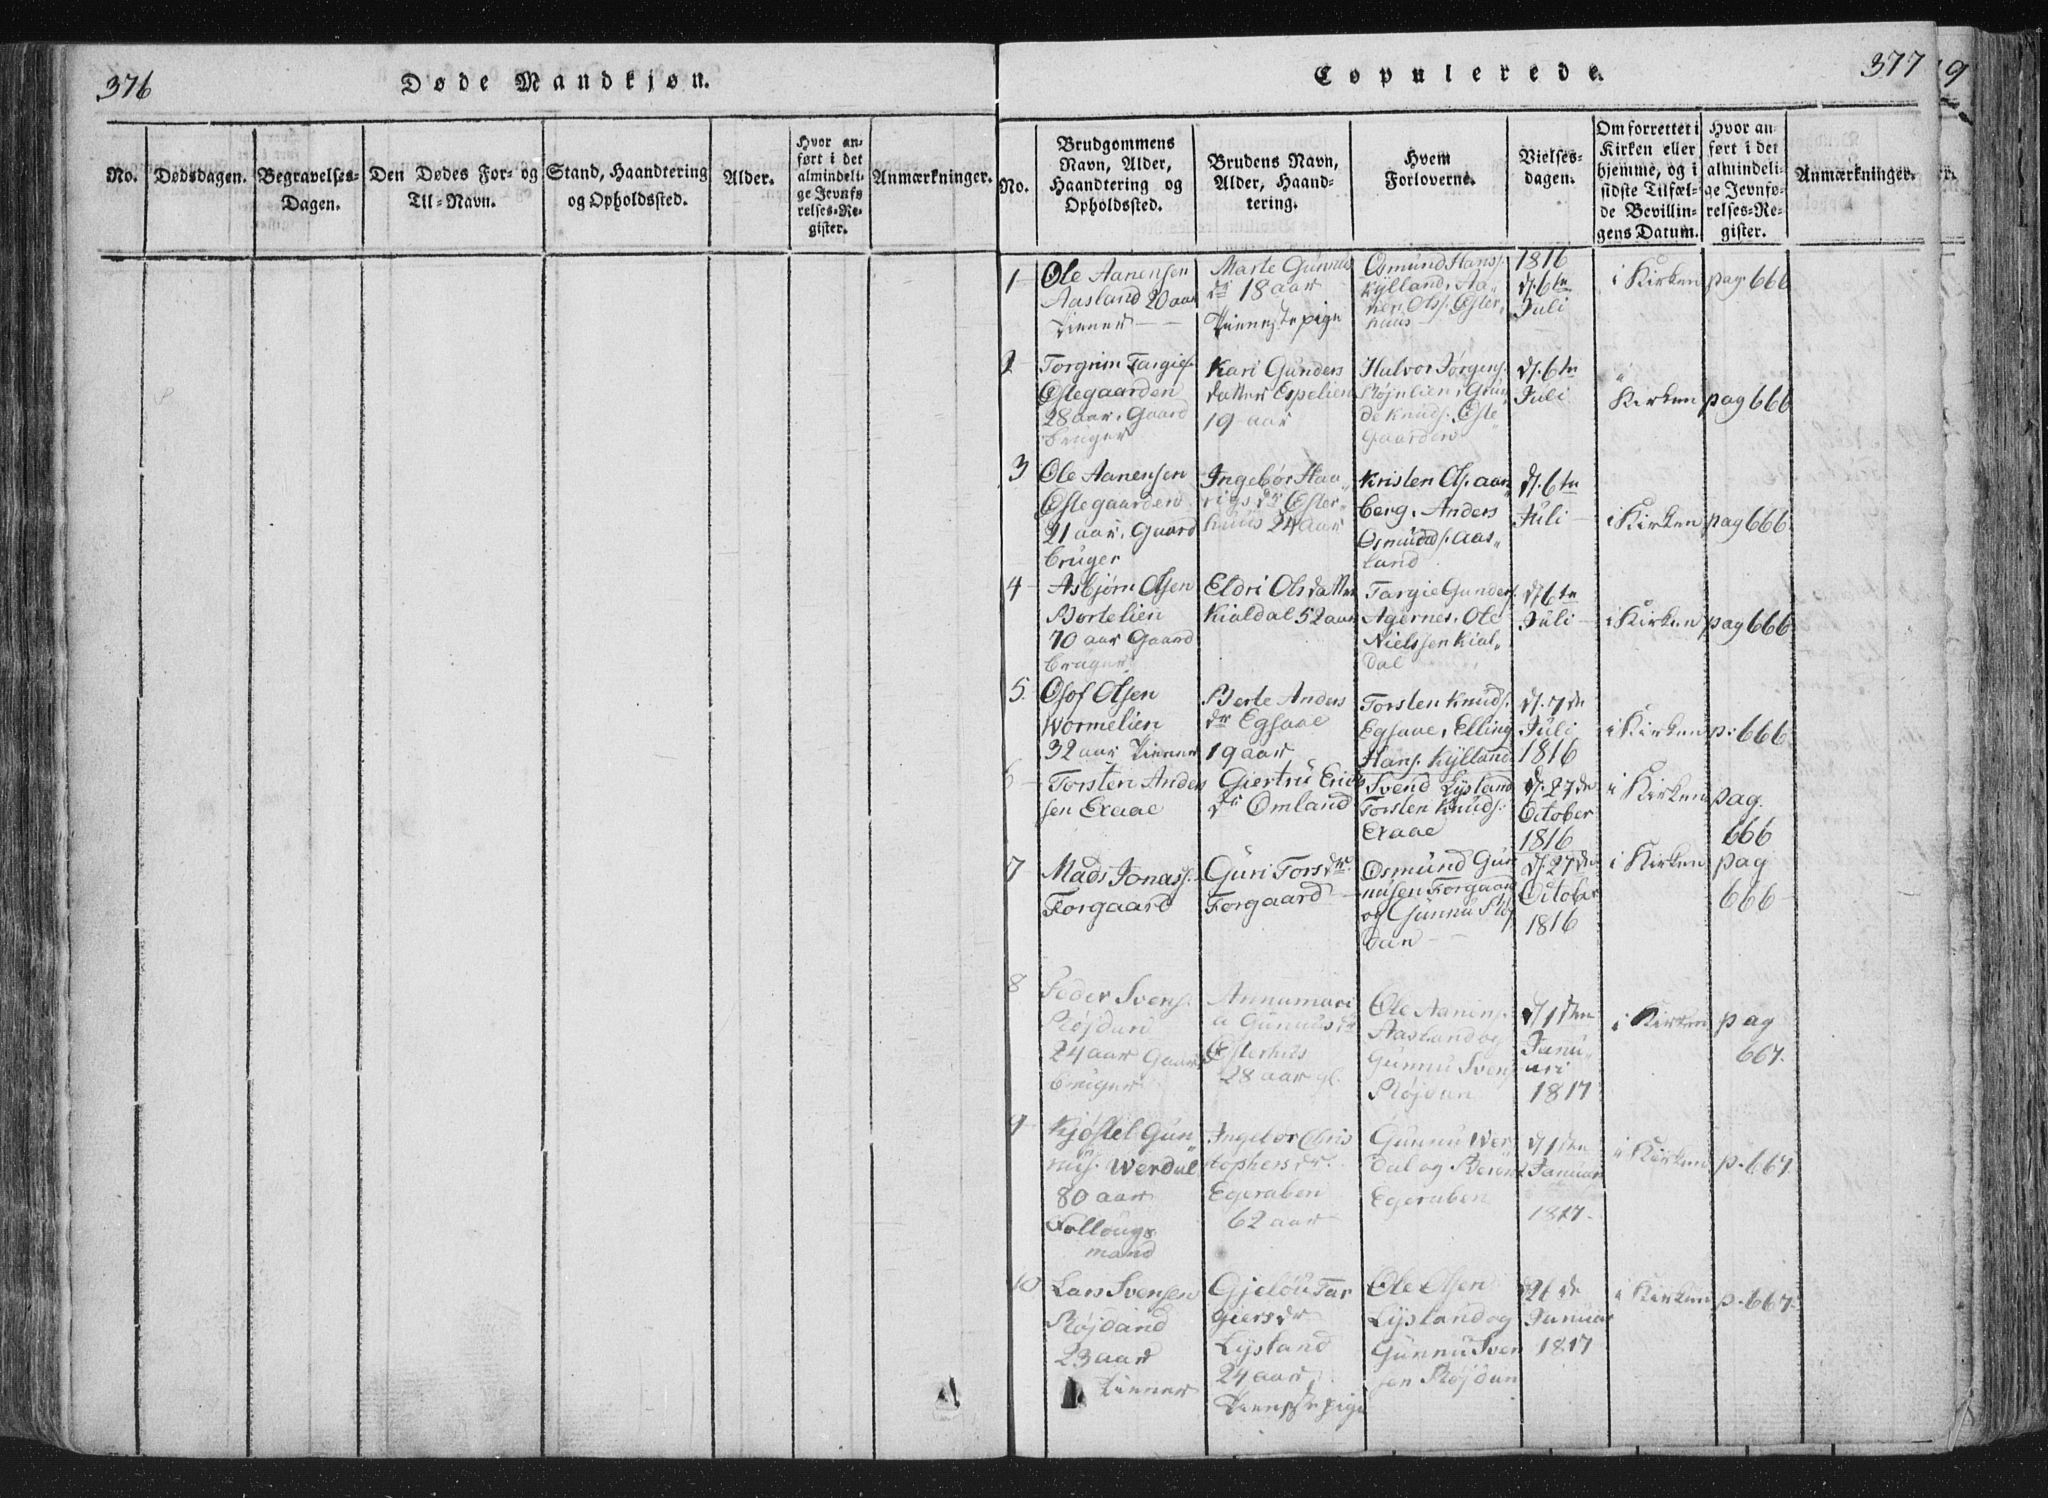 376
Døde Mandkjøn.
No.
Dødsdagen.
Begravelses-
Dagen.
Den Dødes For- og
Til-Navn.
Stand, Haandtering
og Opholdssted.
Alder.
Hvor an-
ført i det
almindeli-
ge Jevnfø
relses-Re-
gister.
Anmærkninger.
Copulerede.
377
9
No.
Brudgommens
Navn, Alder,
Haandtering og
Opholdssted.
Brudens Navn,
Alder, Haand-
tering.
Hvem
Forloverne.
Vielses-
dagen.
Om forrettet i
Kirken eller
hjemme, og i
sidste Tilfæl-
de Bevillin-
gens Datum.
Hvor an-
ført i det
almindeli-
ge Jevnfø-
relses-Re-
gister.
Anmærkninger.
1
Ole Aanensen
Aasland 20 aar
Tiener
Marte Gunnus
dr 18 aar
Tieneste pige
Osmund Hans.
Kÿlland, Aa-
nen Ols. Ester,,
huus
1816
d. 6te
Juli
i Kirken
pag. 666
2
Torgrim Targies.
Estegaarden
28 aar, Gaard
bruger
Kari Gunders
datter Espelien
19 aar
Halvor Jørgens.
Røjnlien, Gun,,
de Knuds. Este
gaarden
d. 6te
Juli
i
Kirken
pag 666
3
Ole Aanensen
Estegaarden
21 aar, Gaard
bruger
Ingebor Haa,,
vigs dr Ester,,
huus 24 aar
Kristen Ols. aas,,
berg, Anders
Osmunds. Aas,,
land
d. 6te
Juli
i Kirken
pag 666.
4
Asbjørn Olsen
Bortelien
70 aar Gaard
bruger
Eldri Olsdatter
Kialdal 52 aar
Targie Gunders.
Agernes, Ole
Nielssen Kial,,
dal
d. 6te
Juli
i Kirken
pag 666
5
Olof Olsen
Wormelien
32 aar Tiener
Berte Anders
dr Egsaae
19 aar
Torsten Knuds.
Egsaae, Elling
Hans. Kÿlland
d. 7de
Juli
1816
i Kirken
p: 666
6
Torsten Anders
sen Exaae
Giertru Erics
dr Omland
Svend Lÿsland
Torsten Knuds:
Exaae
d. 27de
October
1816
i Kirken
pag.
666
7
Mads Jonas.
Forgaard
Guri Tors dr.
Forgaard
Osmund Gun
nusen Forgaard
og Gunnu Røj
dan
d. 27de
October
1816
i Kirken
pag
666
8
Peder Svens.
Røjdan
24 aar Gaard
bruger
Annamari
a Gunnus dr
Esterhus
28 aar gl.
Ole Aanens.
Aasland og
Gunnu Svens.
Røjdan
d. 1ste
Janu,,
ari
1817
i Kirken
pag
667.
9
Kjøstel Gun,,
nus. Werdal
80 aar
Follougs
mand
Ingebor Chris
tophers dr.
Egeraben
62 aar
Gunnu Wer
dal og
Egeraben
d. 1ste
Januar
1817
i Kirken
p. 667.
10
Lars Svensen
Røjdand
23 aar
Tiener
Gjeløu Tar
giers dr
Lÿsland
24 aar,
Tieneste pige
Ole Olsen
Lÿsland og
Gunnu Sven
sen Røjdan
d. 26de
Januar
1817
i Kirken
p. 667.